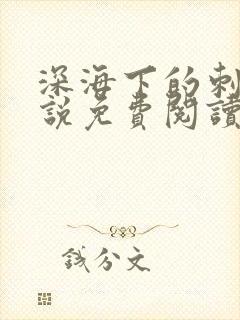 深海下的刺
說免費閱讀
錢分文